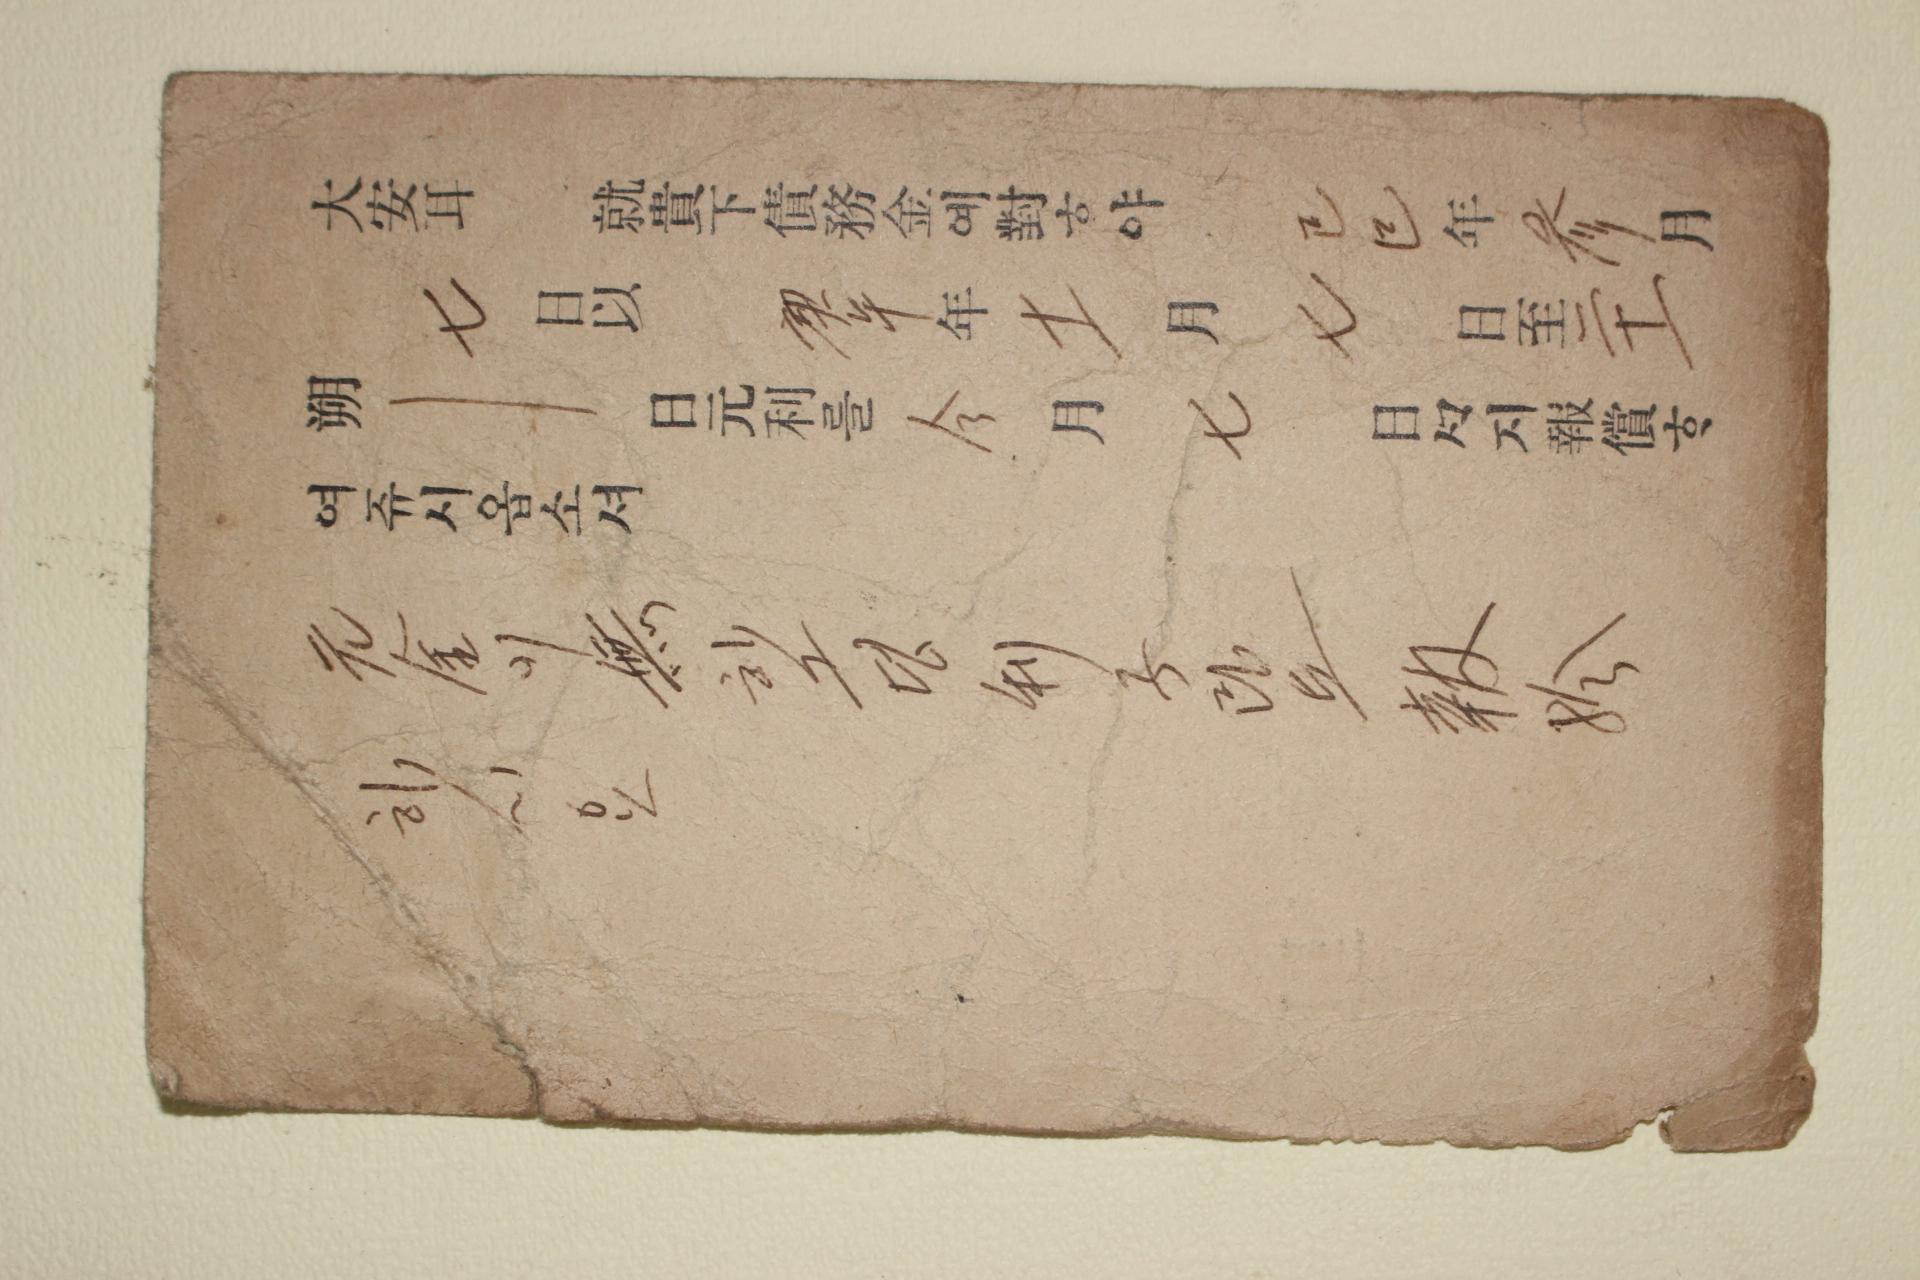 大安耳 就貴下債務金에對ㅎ야 己巳年参月
七日以 庚午年十一月七日至二十一
朔 日元利를今月七日ᄭᆞ지報償ᄒᆞ
여쥬시옵소셔
元金이無하그던利子라도報給
하시요